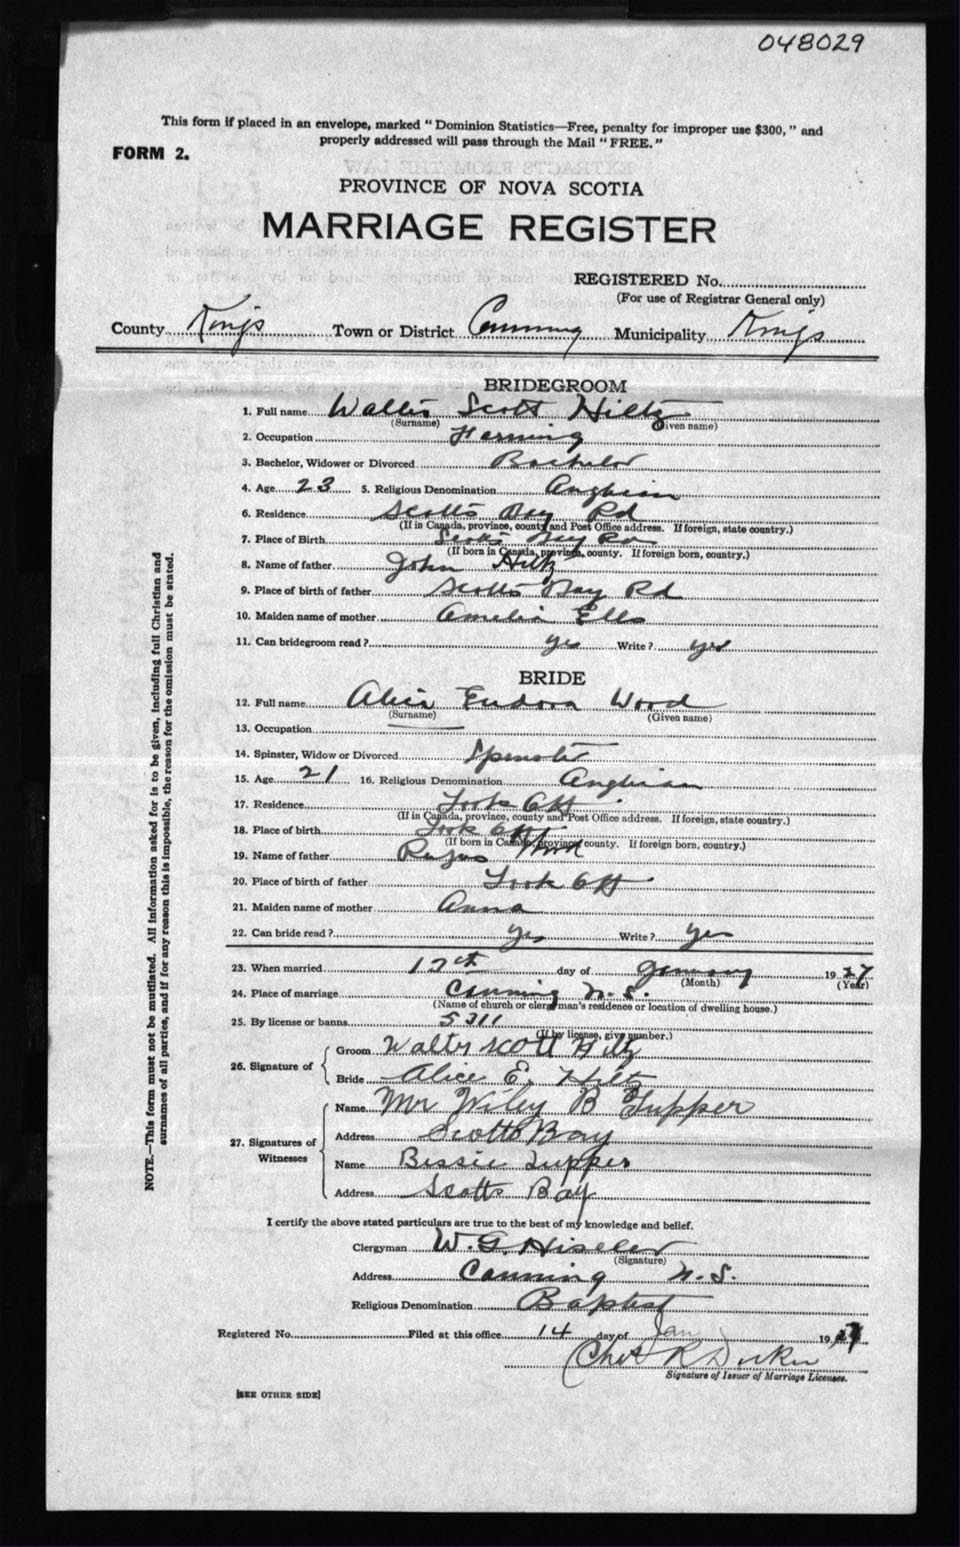 048029
This form if placed in an envelope, marked "Dominion Statistics—Free, penalty for improper use $300," and
properly addressed will pass through the Mail "FREE."
FORM 2.
PROVINCE OF NOVA SCOTIA
MARRIAGE REGISTER
REGISTERED No.
(For use of Registrar General only)
County Kings Town or District Canning Municipality Kings
BRIDEGROOM
1. Full name Walter Scott Hiltz
(Surname) (Given name)
2. Occupation Farming
3. Bachelor, Widower or Divorced Bachelor
4. Age 23 5. Religious Denomination Anglican
6. Residence Scotts Bay Rd
(If in Canada, province, county and Post Office address. If foreign, state country.)
7. Place of Birth Scotts Bay Rd
(If born in Canada, province, county. If foreign born, country.)
8. Name of father John Hiltz
9. Place of birth of father Scotts Bay Rd
10. Maiden name of mother Amelia Ells
11. Can bridegroom read? yes Write? yes
BRIDE
12. Full name Alice Eudora Wood
(Surname) (Given name)
13. Occupation
14. Spinster, Widow or Divorced Spinster
15. Age 21 16. Religious Denomination Anglican
17. Residence Look Off
(If in Canada, province, county and Post Office address. If foreign, state country.)
18. Place of birth Look Off
(If born in Canada, province, county. If foreign born, country.)
19. Name of father Rufus Wood
20. Place of birth of father Look Off
21. Maiden name of mother Anna
22. Can bride read? yes Write? yes
23. When married day of January 1927
(Month) (Year)
24. Place of marriage Canning N.S.
(Name of church or clergyman's residence or location of dwelling house.)
25. By license or banns 5311
(If by license, give number.)
26. Signature of
Groom Walter Scott Hiltz
Bride Alice E. Hiltz
27. Signatures of
Witnesses
Name Mr Wiley B Tupper
Address Scotts Bay
Name Bessie Tupper
Address Scotts Bay
I certify the above stated particulars are true to the best of my knowledge and belief.
Clergyman W. G.
(Signature)
Address Canning N.S.
Religious Denomination Baptist
Registered No. Filed at this office 14 day of Jan 1927
Chas R
Signature of Issuer of Marriage Licenses.
[SEE OTHER SIDE]
NOTE.—This form must not be mutilated. All information asked for is to be given, including full Christian and
surnames of all parties, and if for any reason this is impossible, the reason for the omission must be stated.